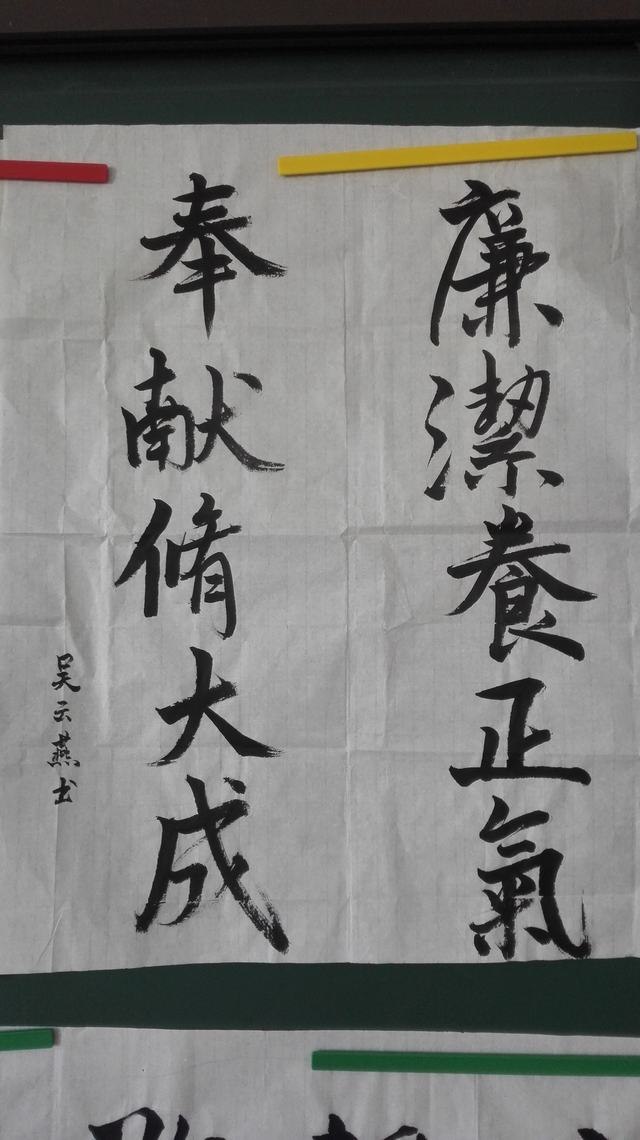 廉潔養正氣
奉献脩大成
吴云燕书